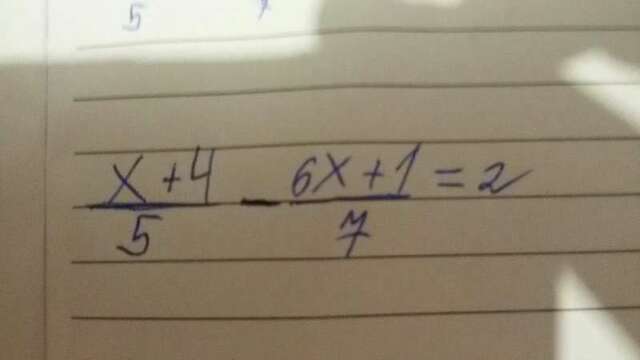 5 7
x+4/5 - 6x+1/7 = 2